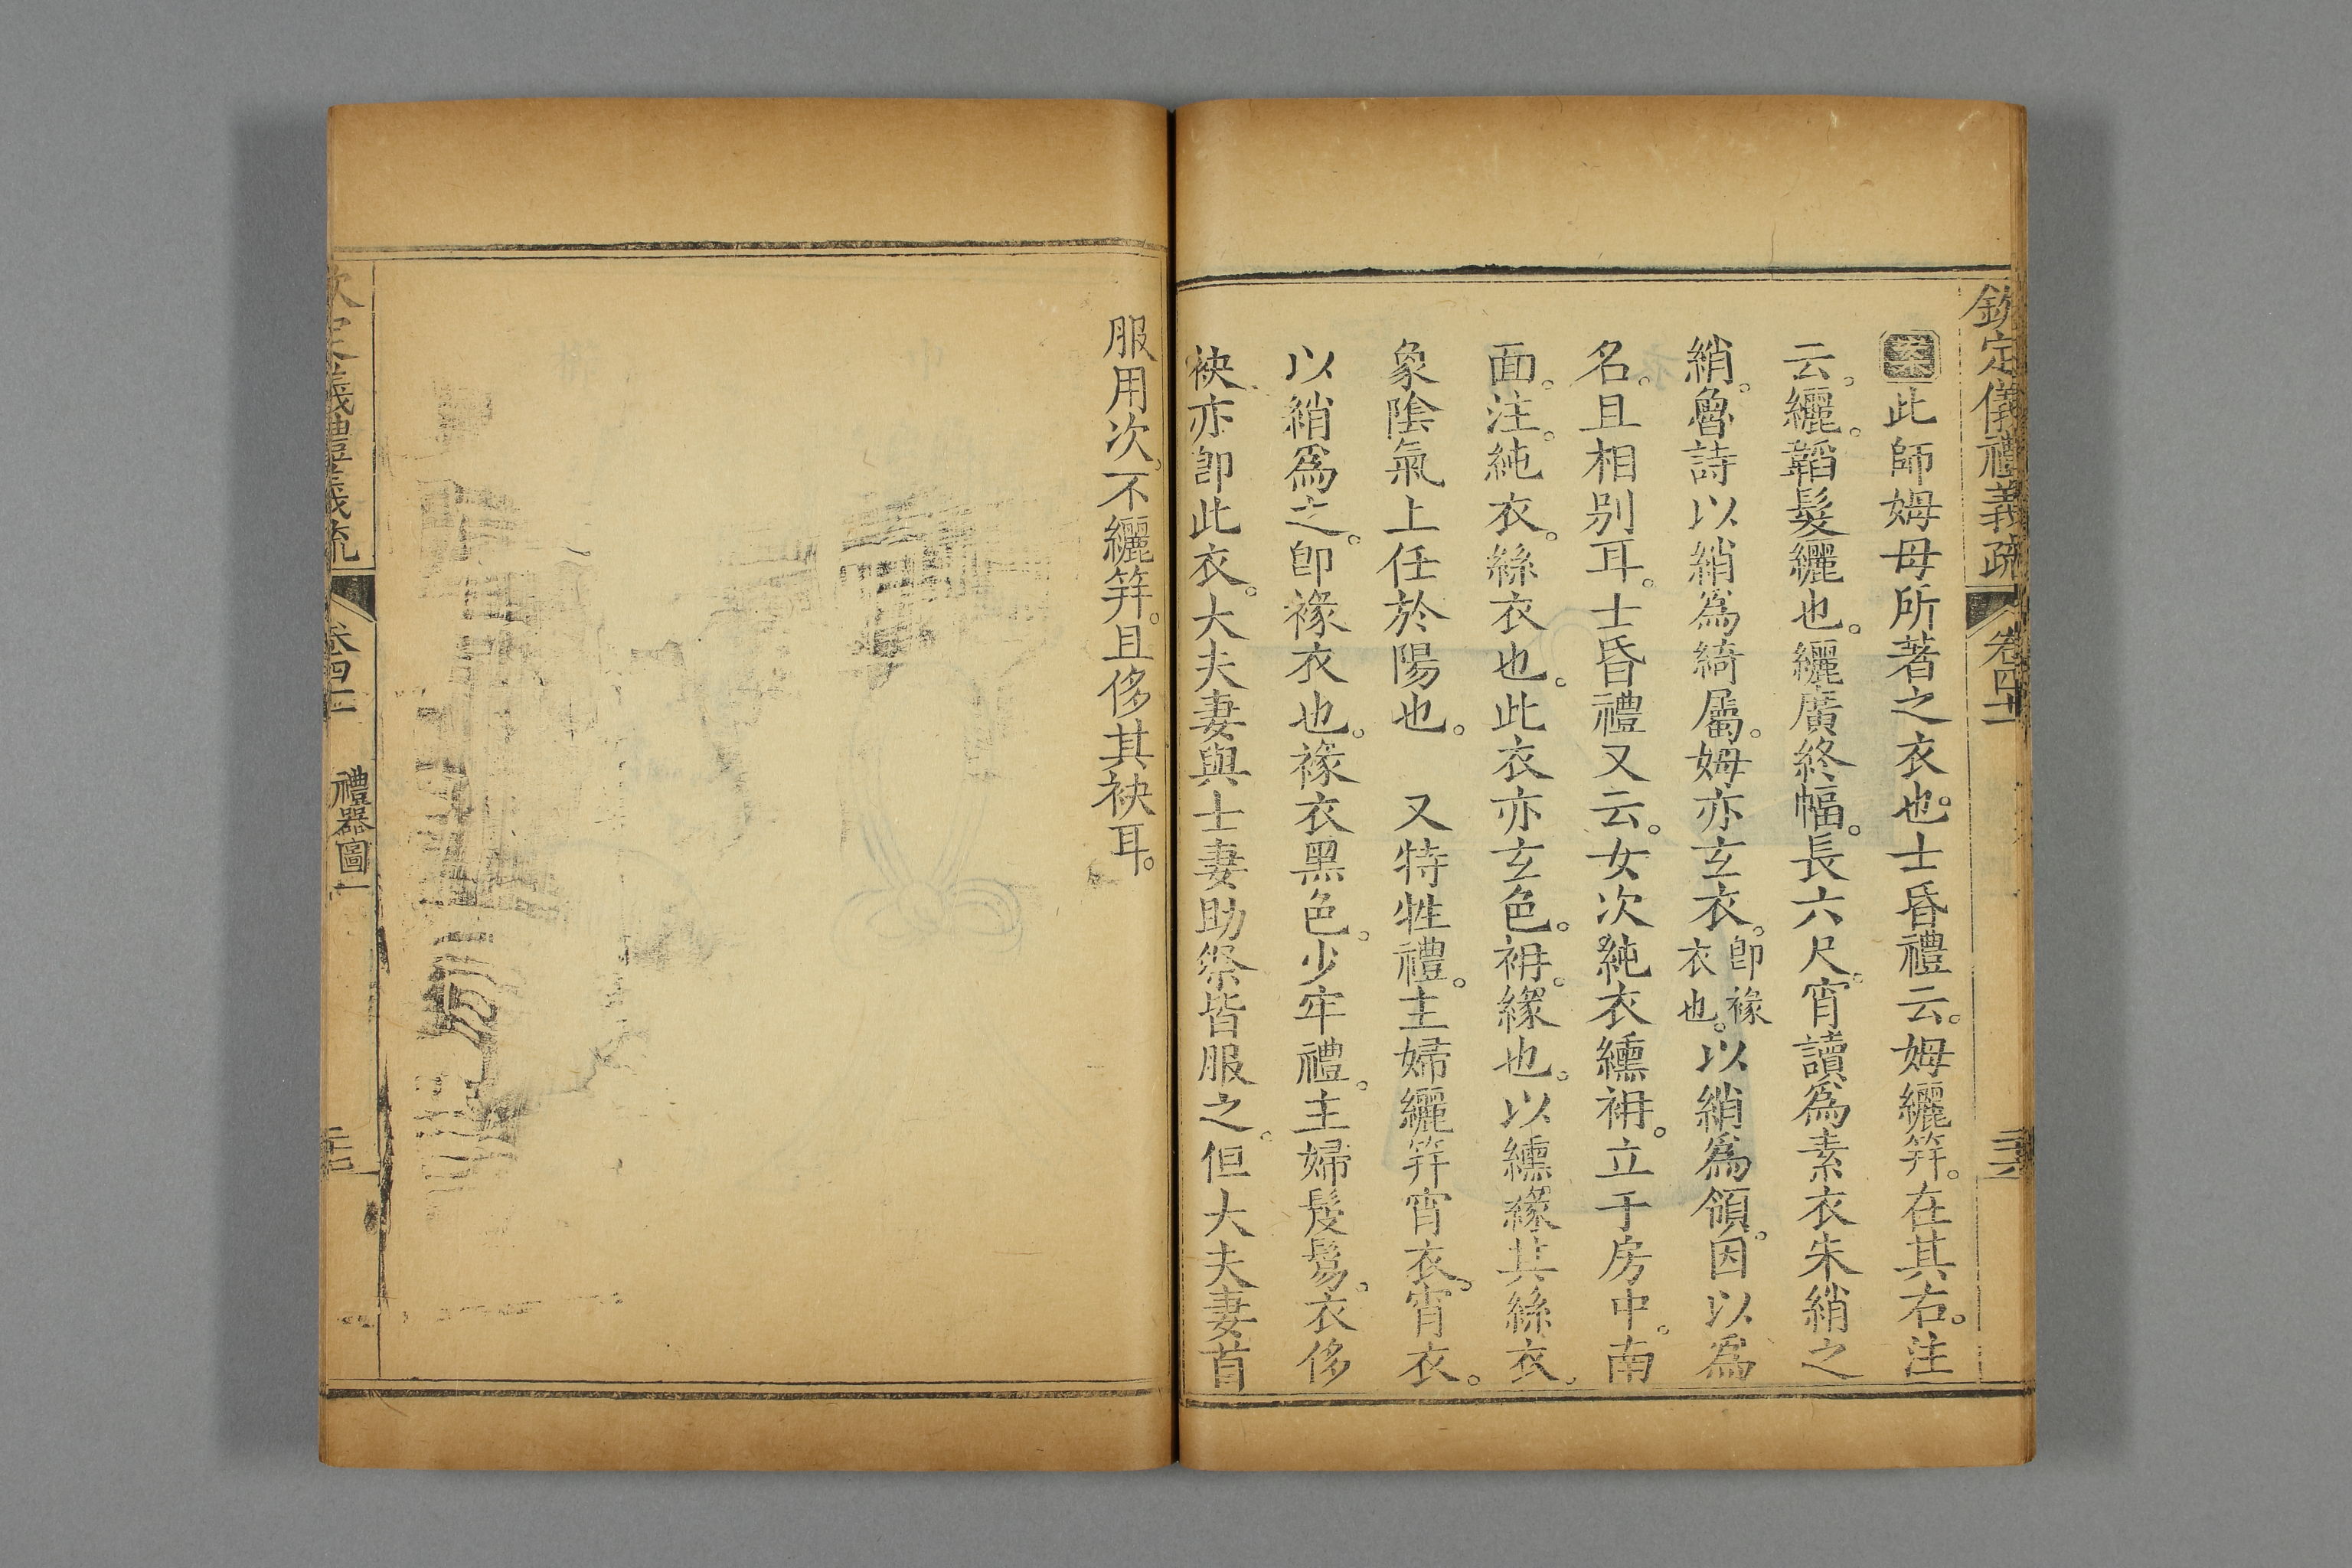 欽定儀禮義疏 卷四十二
案此師姆母所著之衣也士昏禮云。姆纚笄。在其右。注
云。纚。韜髮纚也。纚廣終幅。長六尺。宵讀爲素衣朱綃之
綃。魯詩以綃爲綺屬。姆亦玄衣。即褖衣也。以綃爲領。因以爲
名。且相別耳。士昏禮又云。女次純衣纁袡。立于房中。南
面。注。純衣。絲衣也。此衣亦玄色。袡。緣也。以纁緣其絲衣。
象陰氣上任於陽也。 又特牲禮。主婦纚笄宵衣。宵衣。
以綃爲之。卽褖衣也。褖衣黑色。少牢禮。主婦髲鬄。衣侈
袂。亦卽此衣。大夫妻與士妻助祭皆服之。但大夫妻首
服用次。不纚笄。且侈其袂耳。
欽定儀禮義疏 卷四十二 禮器圖